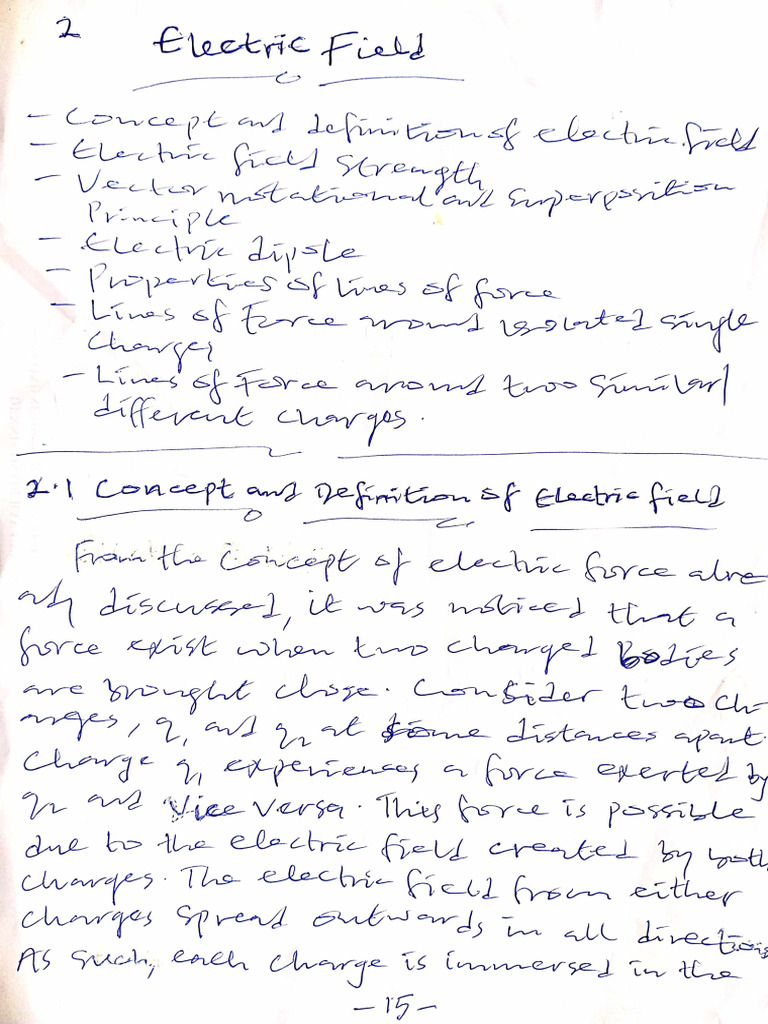 2
Electric Field
- Concept and definition of electric field
- Electric field Strength
- Vector notational and Superposition
Principle
- Electric dipole
- Properties of lines of force
- Lines of Force around isolated single
Charges
- Lines of Force around two similar/
different charges.
2.1 Concept and Definition of Electric field
From the Concept of electric force alre
ady discussed, it was noticed that a
force exist when two charged Bodies
are brought close. Consider two ch-
arges, q1 and q2 at some distances apart.
Charge q1 experiences a force exerted by
q2 and Vice Versa. This force is possible
due to the electric field created by both
charges. The electric field from either
charges spread outwards in all directions
As such, each charge is immersed in the
-15-